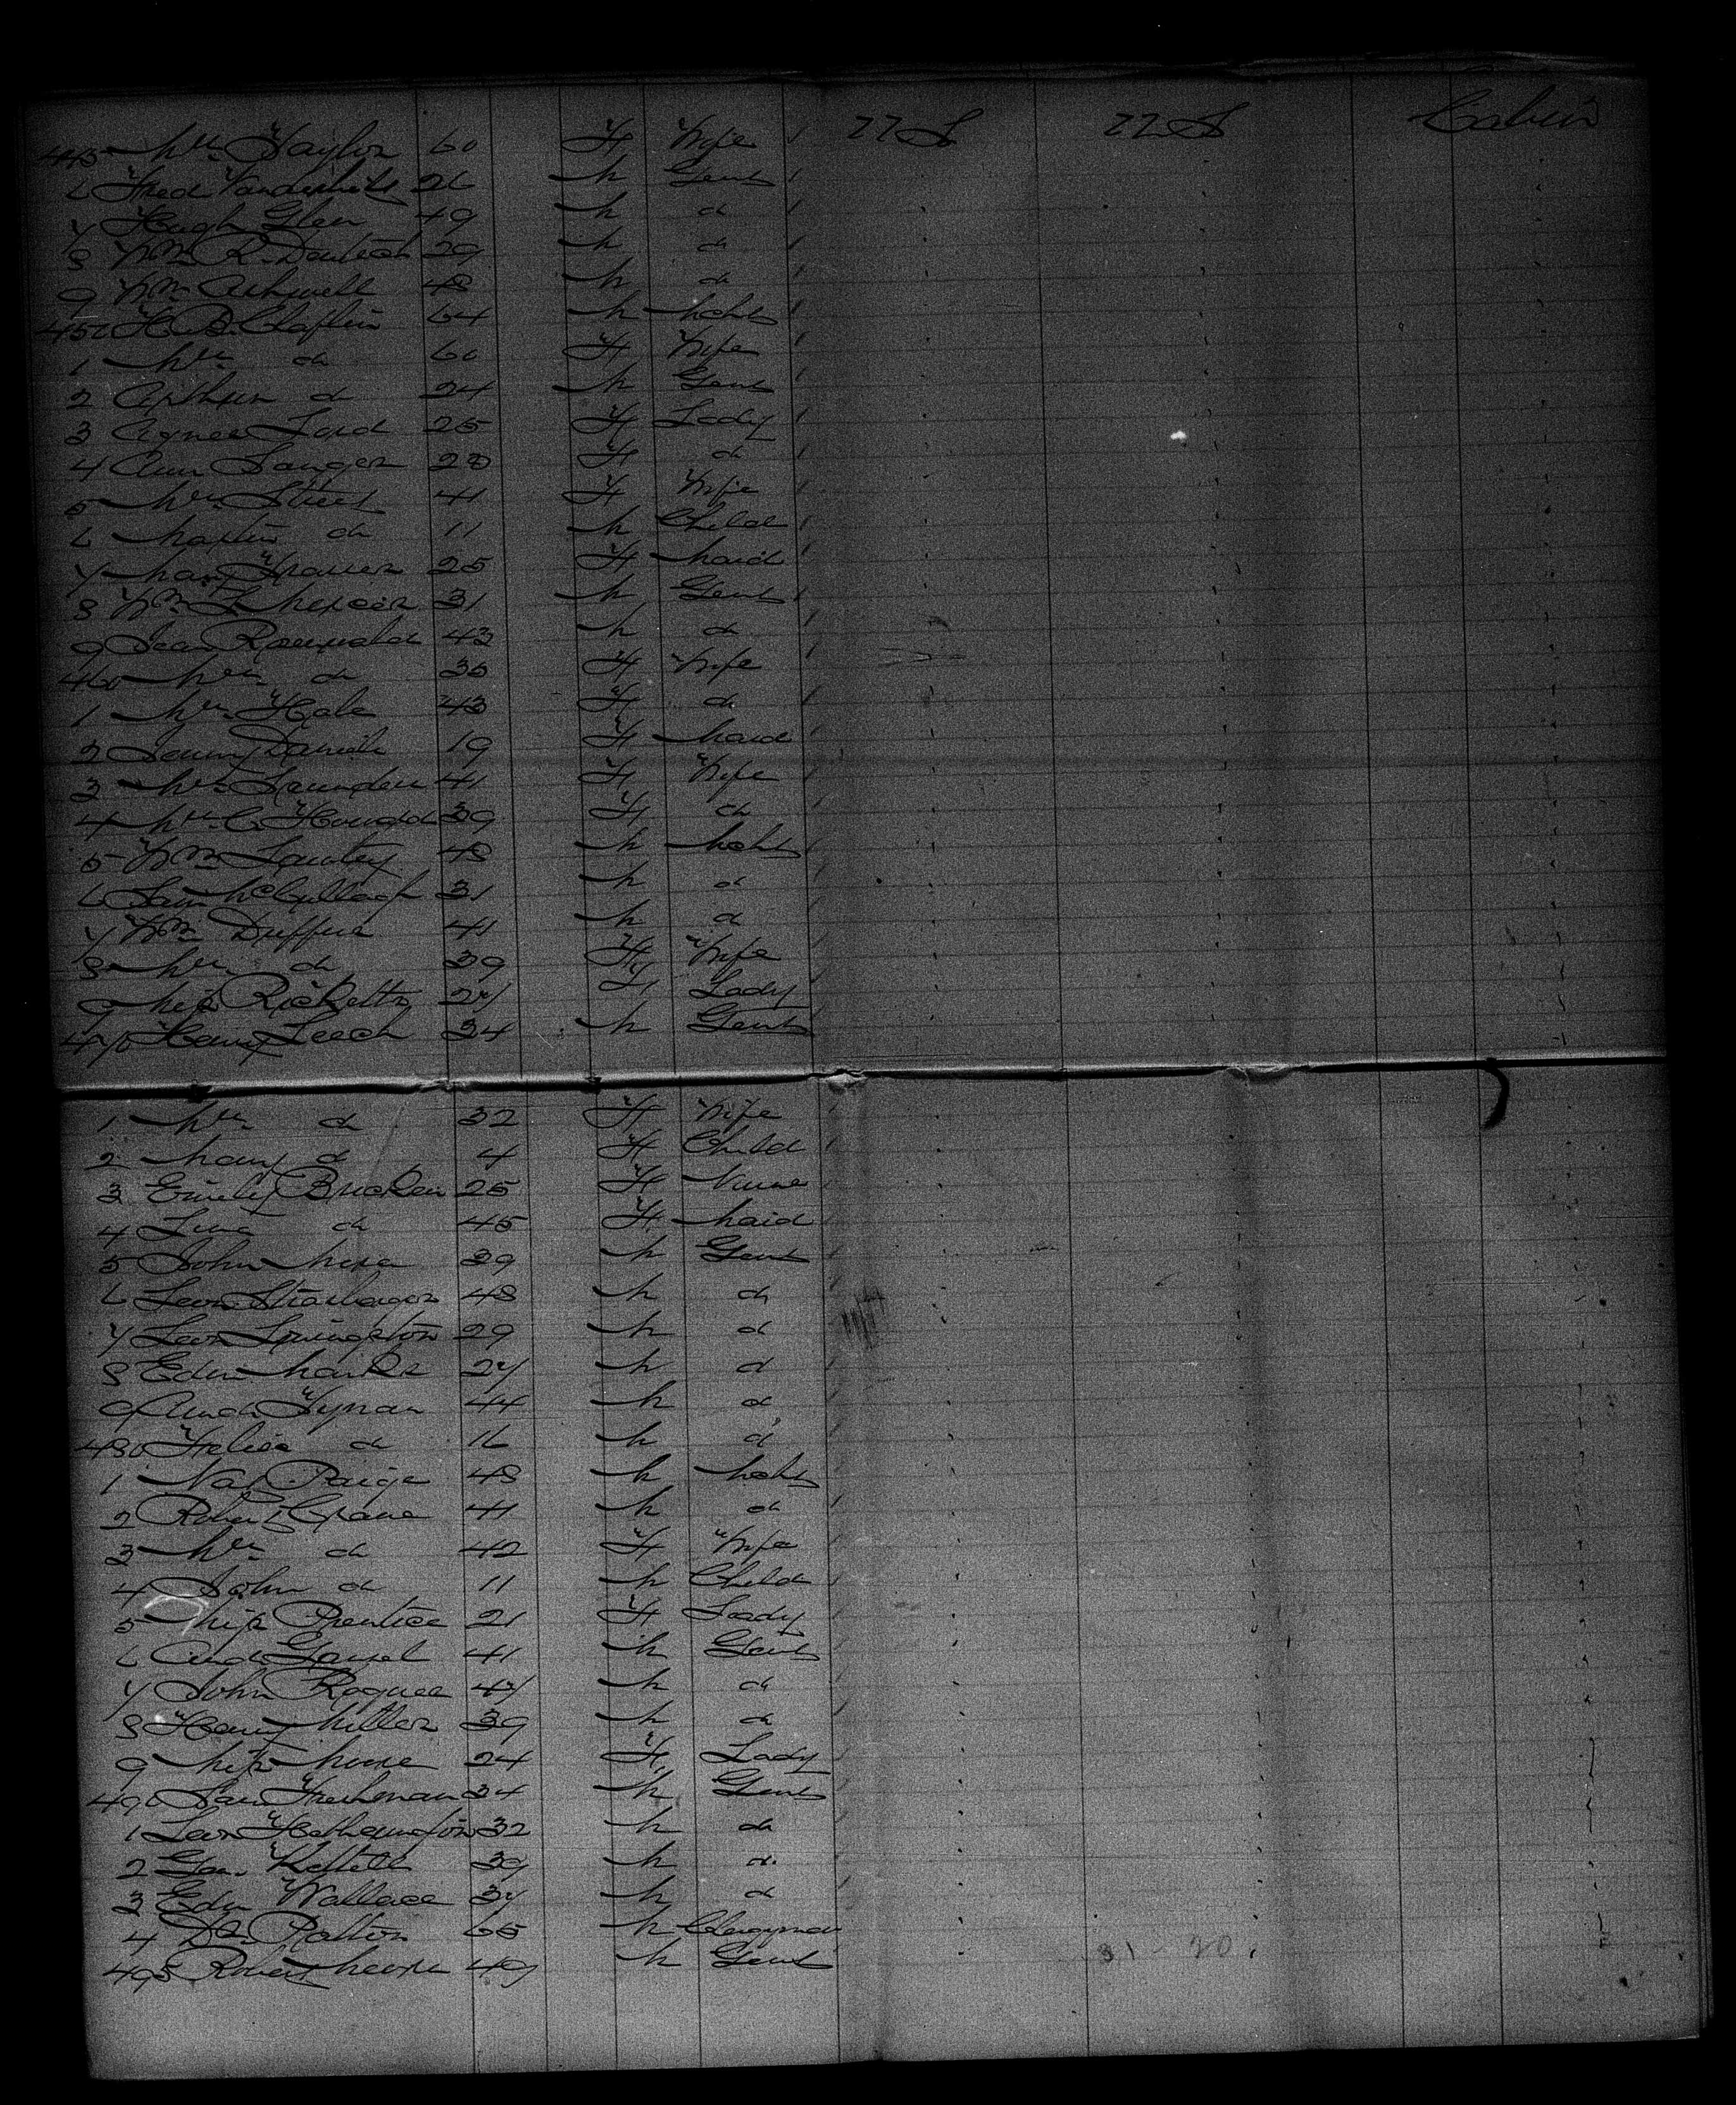 445 Mrs Taylor 60 F Wife 1 22 S 22 S Cabin
6 Fred Vanderhelt 26 M Gent 1
7 Hugh Glen 49 M do 1
8 Wm R. 29 M do 1
9 Wm Ashwell 48 M do 1
450 H. B. Claflin 64 M Mcht 1
1 Mrs do 60 F Wife 1
2 Arthur do 24 M Gent 1
3 Agnes Lord 25 F Lady 1
4 Ann Sanger 28 F do 1
5 Mrs Street 41 F Wife 1
6 Martin do 11 M Child 1
7 Mary 25 F Maid 1
8 Wm L Mercer 31 M Gent 1
9 Rosenwald 43 M do 1
460 Mrs do 30 F Wife 1
1 Mrs Hale 43 F do 1
2 Daniels 19 F Maid 1
3 Mrs Saunders 41 F Wife 1
4 Mrs C. 39 F do 1
5 Wm 48 M Mcht 1
6 Sam McCullagh 31 M do 1
7 Wm Duffus 41 M do 1
8 Mrs do 39 F Wife 1
9 Miss Ricketts 27 F Lady 1
470 Henry Leech 34 M Gent
1 Mrs do 32 F Wife 1
2 Mary do 4 F Child 1
3 Emily Bricken 25 F Nurse
4 Lina do 45 F Maid 1
5 John 39 M Gent 1
6 Leon 48 M do
7 Leon Livingston 29 M do 1
8 Edw Marks 27 M do 1
9 Andr Tynan 44 M do
480 do 16 M do
1 Nat Paige 48 M Mcht
2 Robert Crane 41 M do 1
3 Mrs do 42 F Wife 1
4 John do 11 M Child 1
5 Miss Prentice 21 F Lady 1
6 Andr 41 M Gent
7 John 47 M do 1
8 Henry Miller 39 M do 1
9 Miss 24 F Lady 1
490 Sam Freshman 34 M Gent
1 Leon Hetherington 32 M do 1
2 Geo. 39 M do
3 Edw Wallace 37 M do
4 Dr. Ralton 65 M Clergyman
495 Robert 49 M Gent 31 - 20